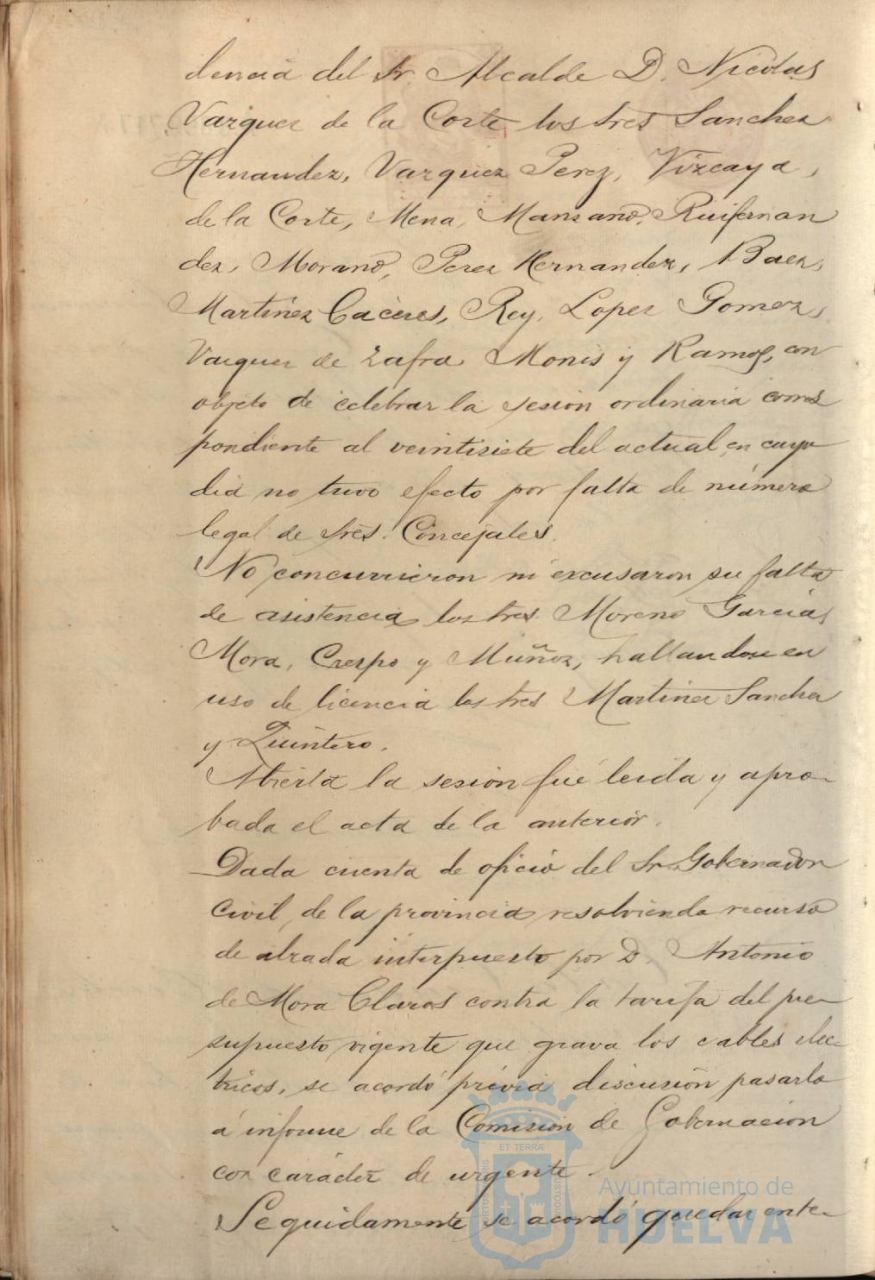 dencia del Sr. Alcalde D. Nicolas
Vazquez de la Corte, los Sres Sanchez
Hernandez, Vazquez Perez, Vizcaya,
de la Corte, Mena, Manzano, Ruifernan
dez, Morano, Perez Hernandez, Baez,
Martinez Cáceres, Rey, Lopez Gomez,
Vazquez de Zafra Monis y Ramos, con
objeto de celebrar la sesion ordinaria corres
pondiente al veintisiete del actual, en cuyo
dia no tuvo efecto por falta de número
legal de Sres. Concejales.
No concurrieron ni excusaron su falta
de asistencia los Sres Moreno Garcia,
Mora, Crespo y Muñoz, hallandose en
uso de licencia los Sres Martinez Sanchez
y Quintero.
Abierta la sesion fué leida y apro-
bada el acta de la anterior.
Dada cuenta de oficio del Sr. Gobernador
Civil, de la provincia resolviendo recurso
de alzada interpuesto por D. Antonio
de Mora Claros contra la tarifa del pre-
supuesto vigente que grava los cables elec-
tricos, se acordó prévia discusión pasarlo
á informe de la Comision de Gobernacion
con carácter de urgente.
Seguidamente se acordó quedar ente-
ET TERRÆ
Ayuntamiento de
HUELVA